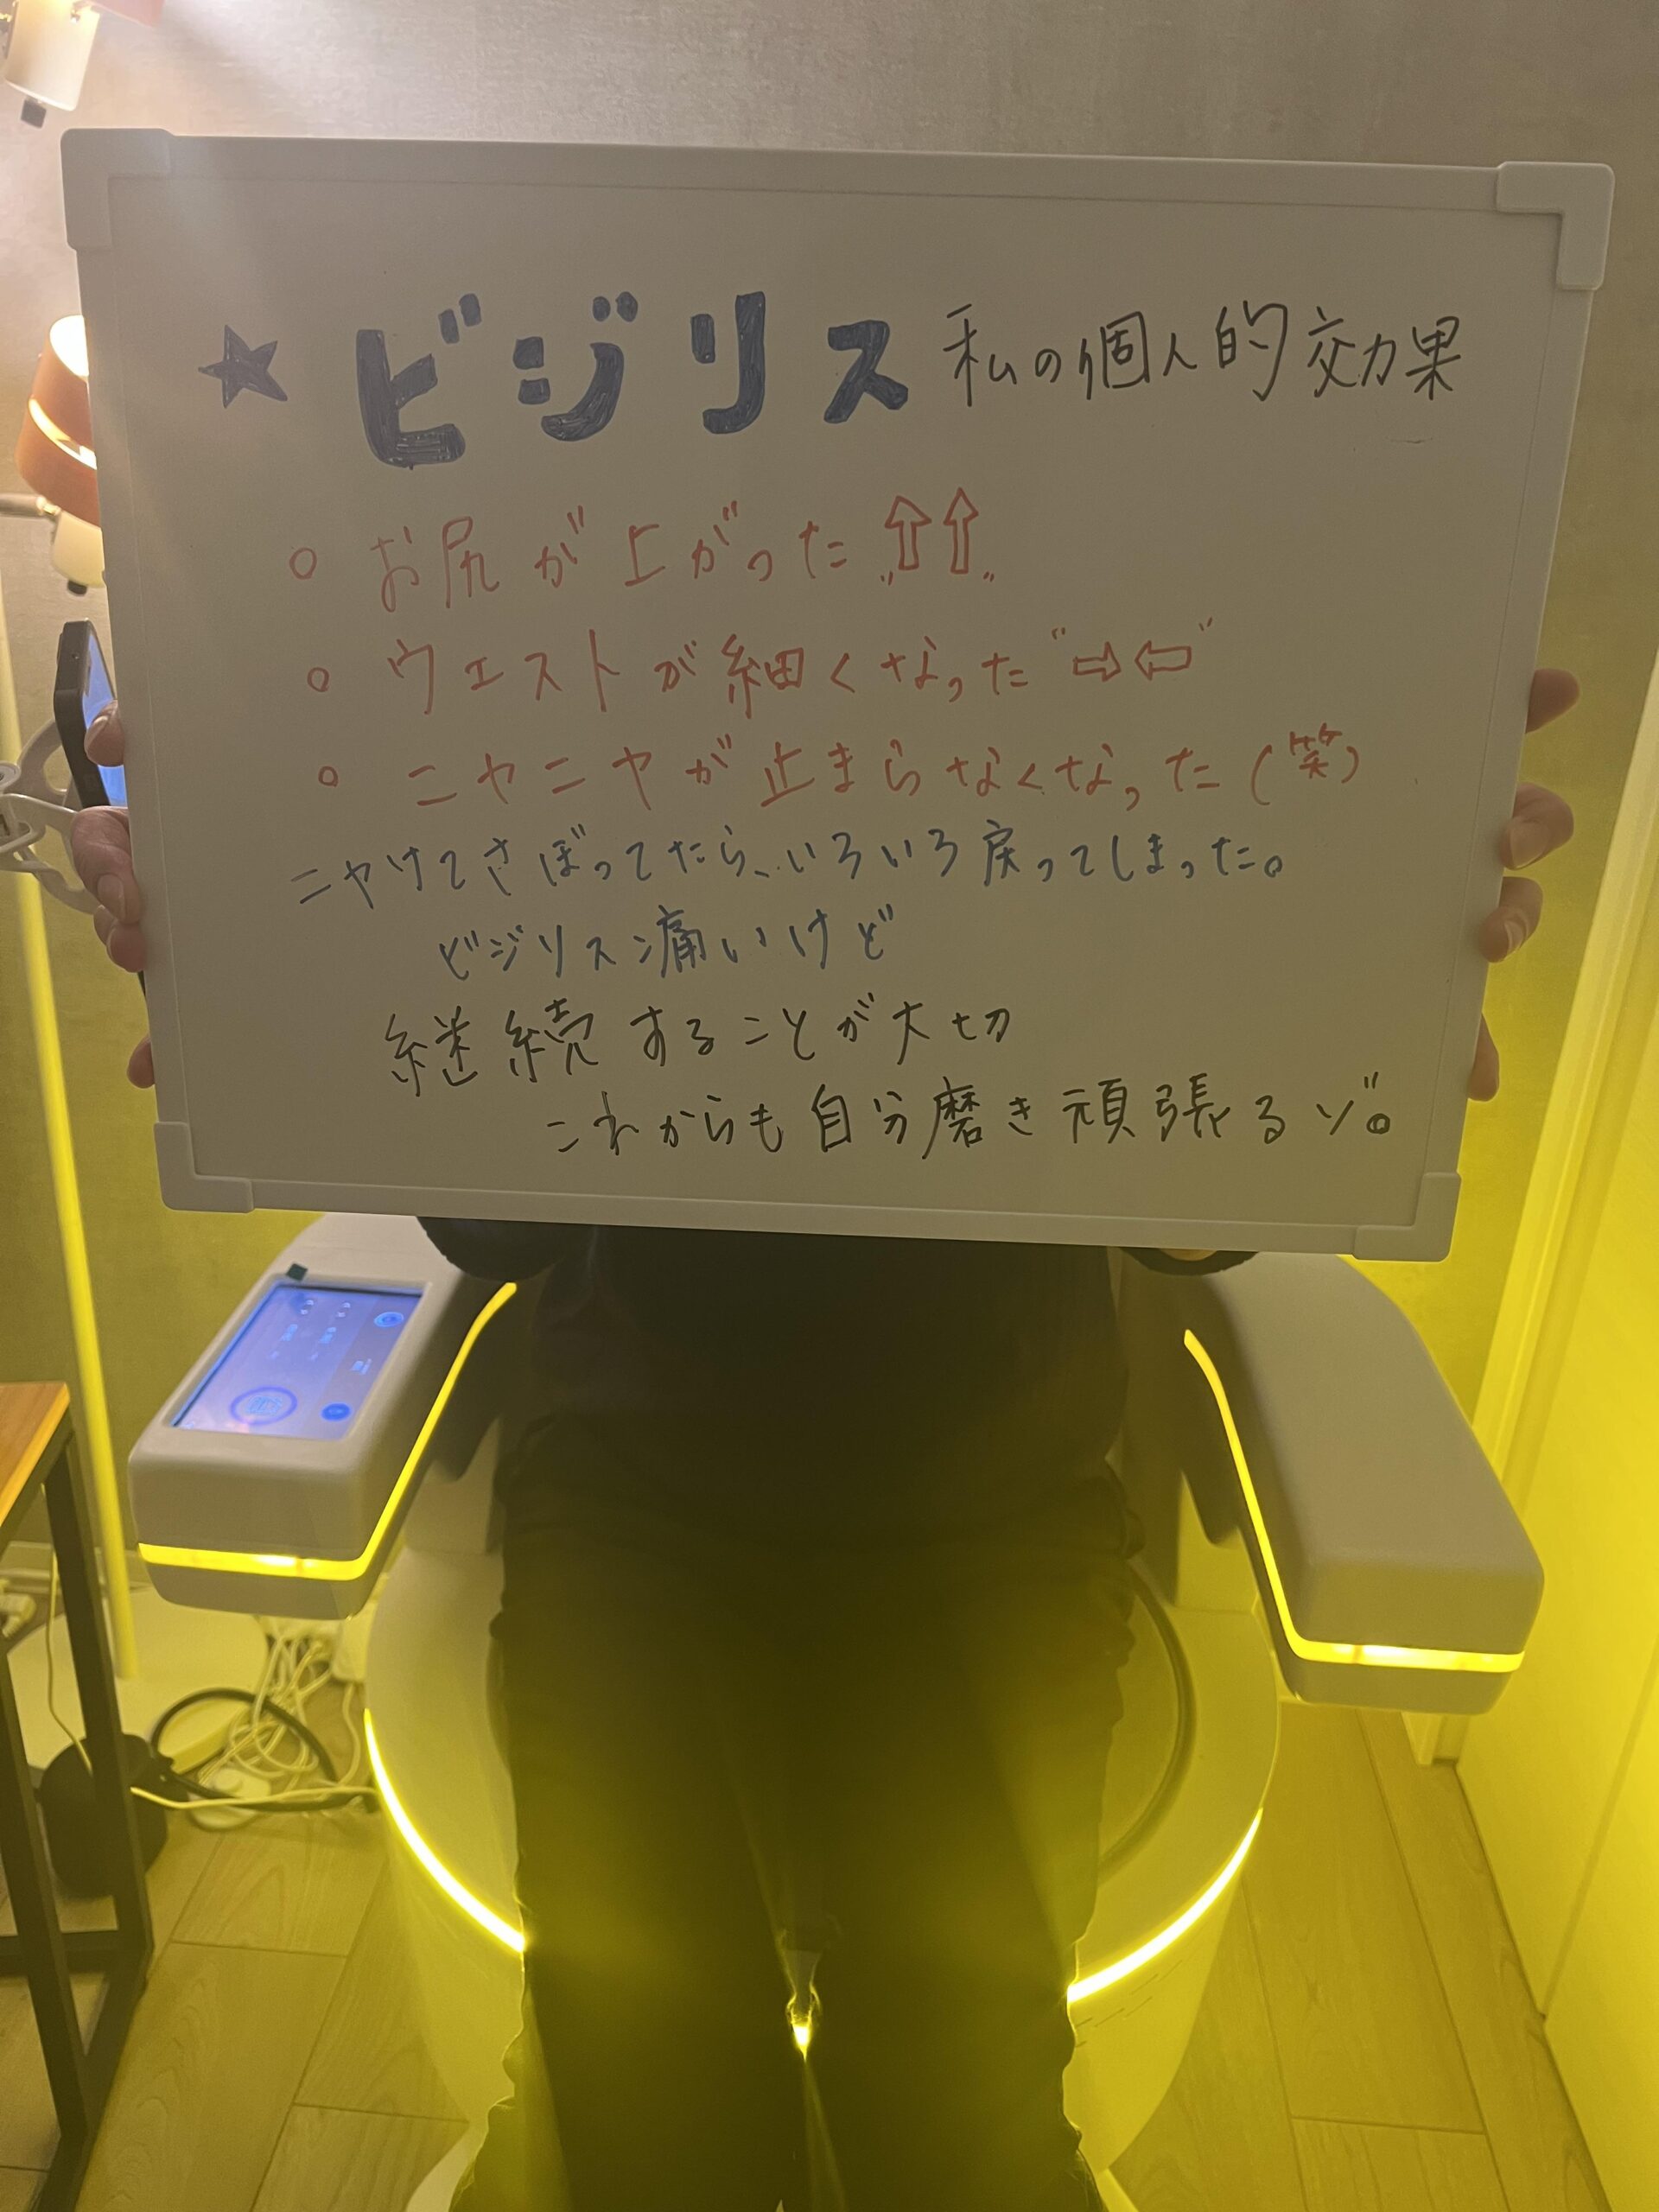 ★ビジリス 私の個人的効果
○ お尻が上がった〃⇧⇧〃
○ ウエストが細くなった〃⇨⇦〃
○ ニヤニヤが止まらなくなった(笑)
ニヤけてさぼってたら、いろいろ戻ってしまった。
ビジリス痛いけど
継続することが大切
これからも自分磨き頑張るゾ。